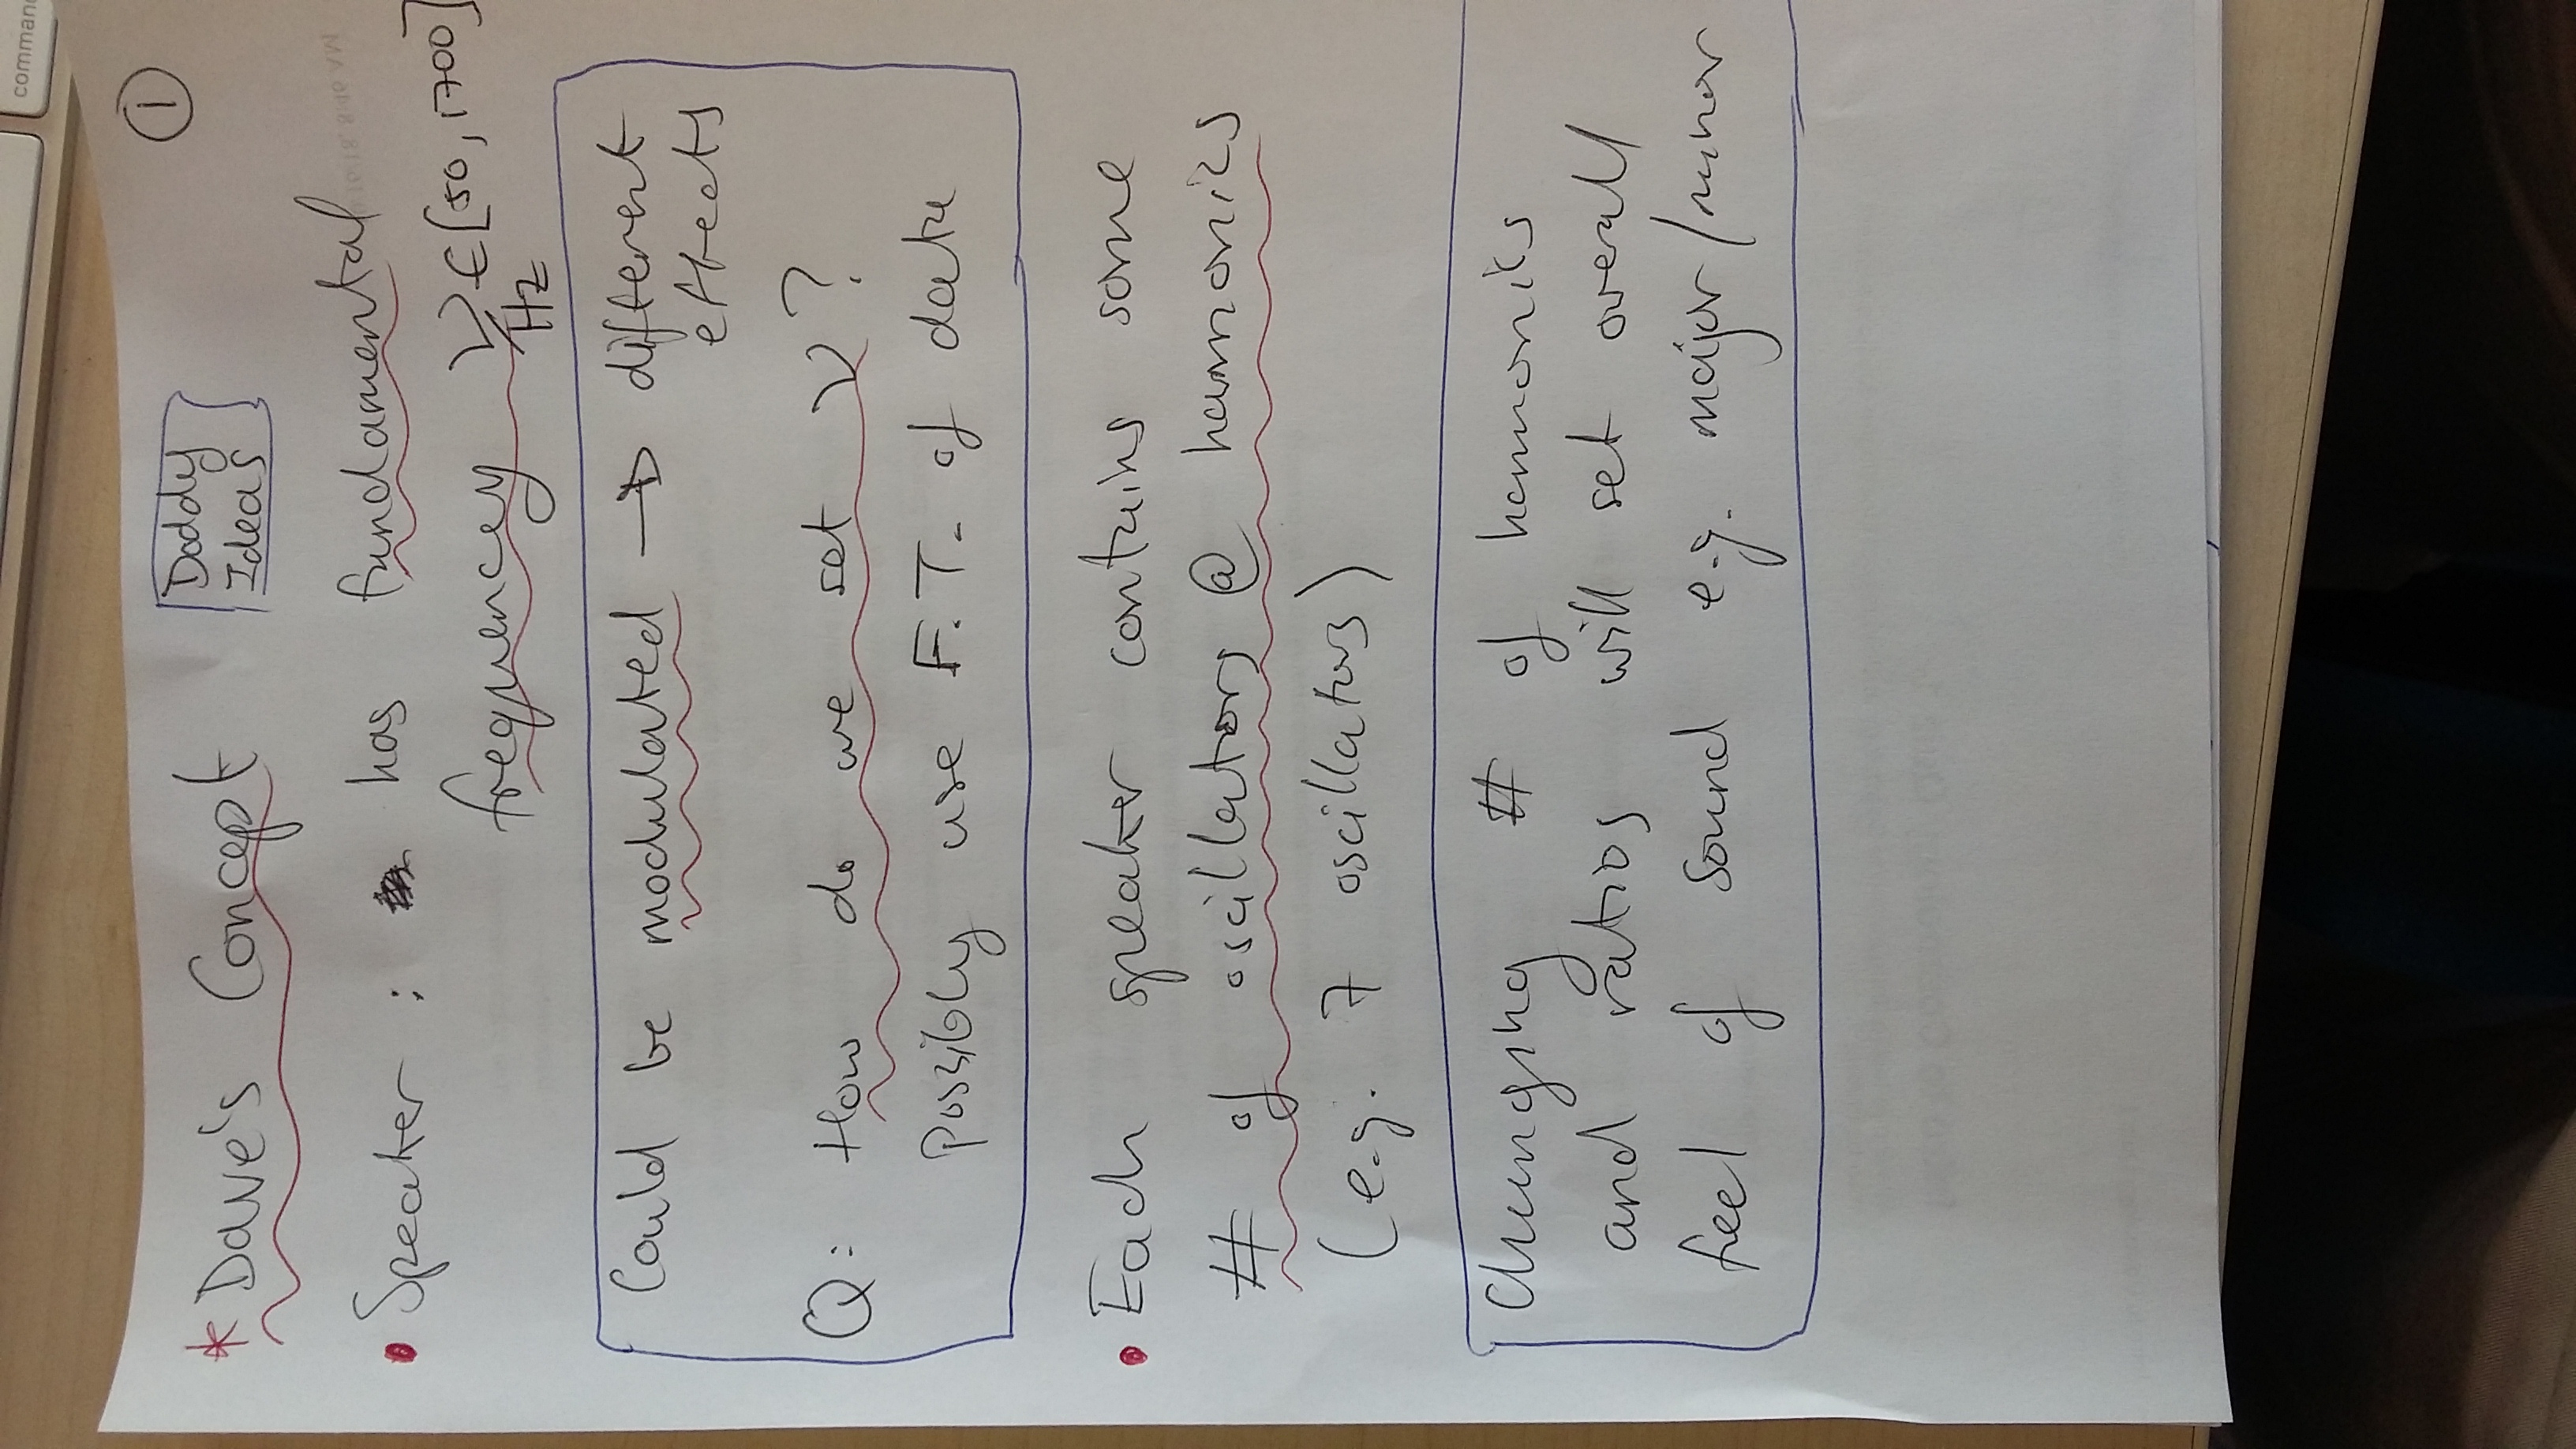 command
①
* Dave's Concept
Doddy
Ideas
• Speaker : has fundamental
frequencey ν/Hz ∈ [50, 1700]
Could be modulated → different
effects
Q: How do we set ν ?
Possibly use F.T. of data
• Each speaker contains some
# of oscillators @ harmonics
(e.g. 7 oscillators)
Changing # of harmonics
and ratios will set overall
feel of sound e.g. major/minor